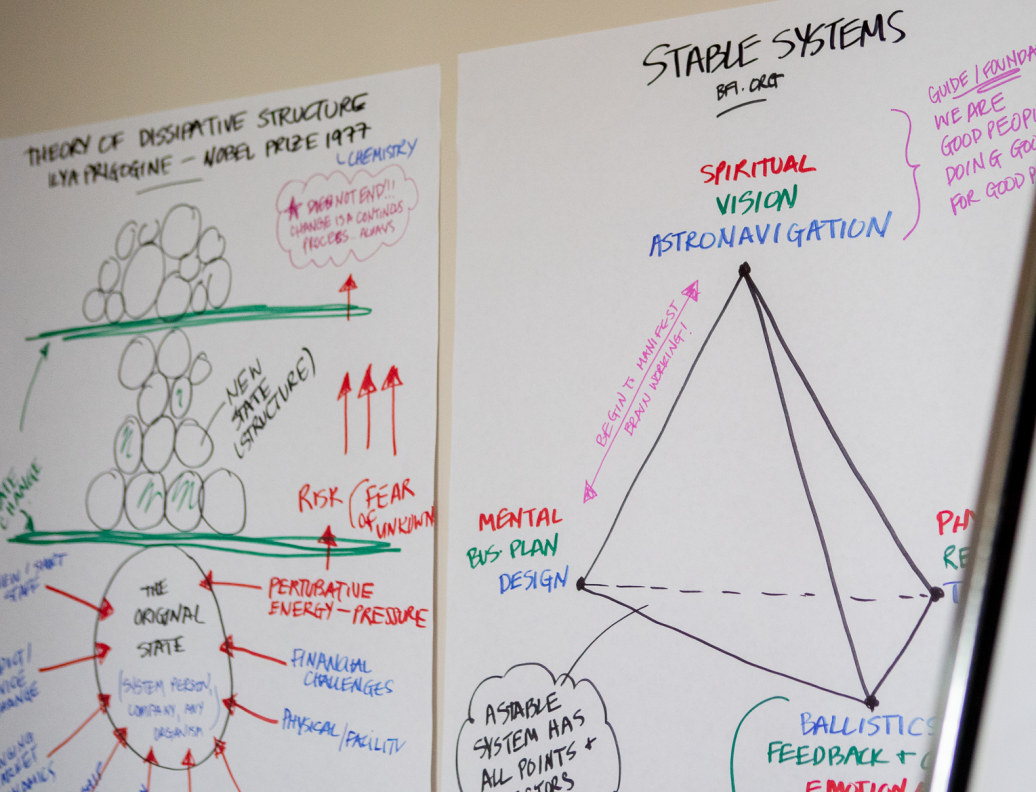 THEORY OF DISSIPATIVE STRUCTURE
ILYA PRIGOGINE — NOBEL PRIZE 1977
CHEMISTRY
DOES NOT END!!!
CHANGE IS A CONTINOS
PROCESS... ALWAYS
NEW
STATE
(STRUCTURE)
RISK (FEAR
OF UNKOWN
CHANGE
STAFF
THE
ORIGINAL
STATE
(SYSTEM PERSON,
COMPANY, ANY
ORGANISM)
PERTUBATIVE
ENERGY — PRESSURE
FINANCIAL
CHALLENGES
PHYSICAL/FACILITY
STABLE SYSTEMS
BFI.ORG
GUIDE/FOUNDA
WE ARE
GOOD PEOPL
DOING GOO
FOR GOOD P
SPIRITUAL
VISION
ASTRONAVIGATION
BEGIN TO MANIFEST
BRAIN WORKING!
MENTAL
BUS. PLAN
DESIGN
PH
RE
T
A STABLE
SYSTEM HAS
ALL POINTS +
BALLISTICS
FEEDBACK +
EMOTION